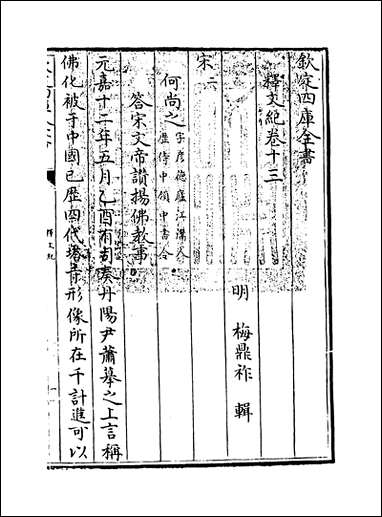 欽定四庫全書
釋文紀卷十三
明 梅鼎祚 輯
宋二
何尚之 字彦徳廬江灊人
歴侍中領中書令
答宋文帝讃揚佛教事
元嘉十二年五月乙酉有司奏丹陽尹蕭摹之上言稱
佛化被于中國已歴四代塔寺形像所在千計進可以
釋文紀